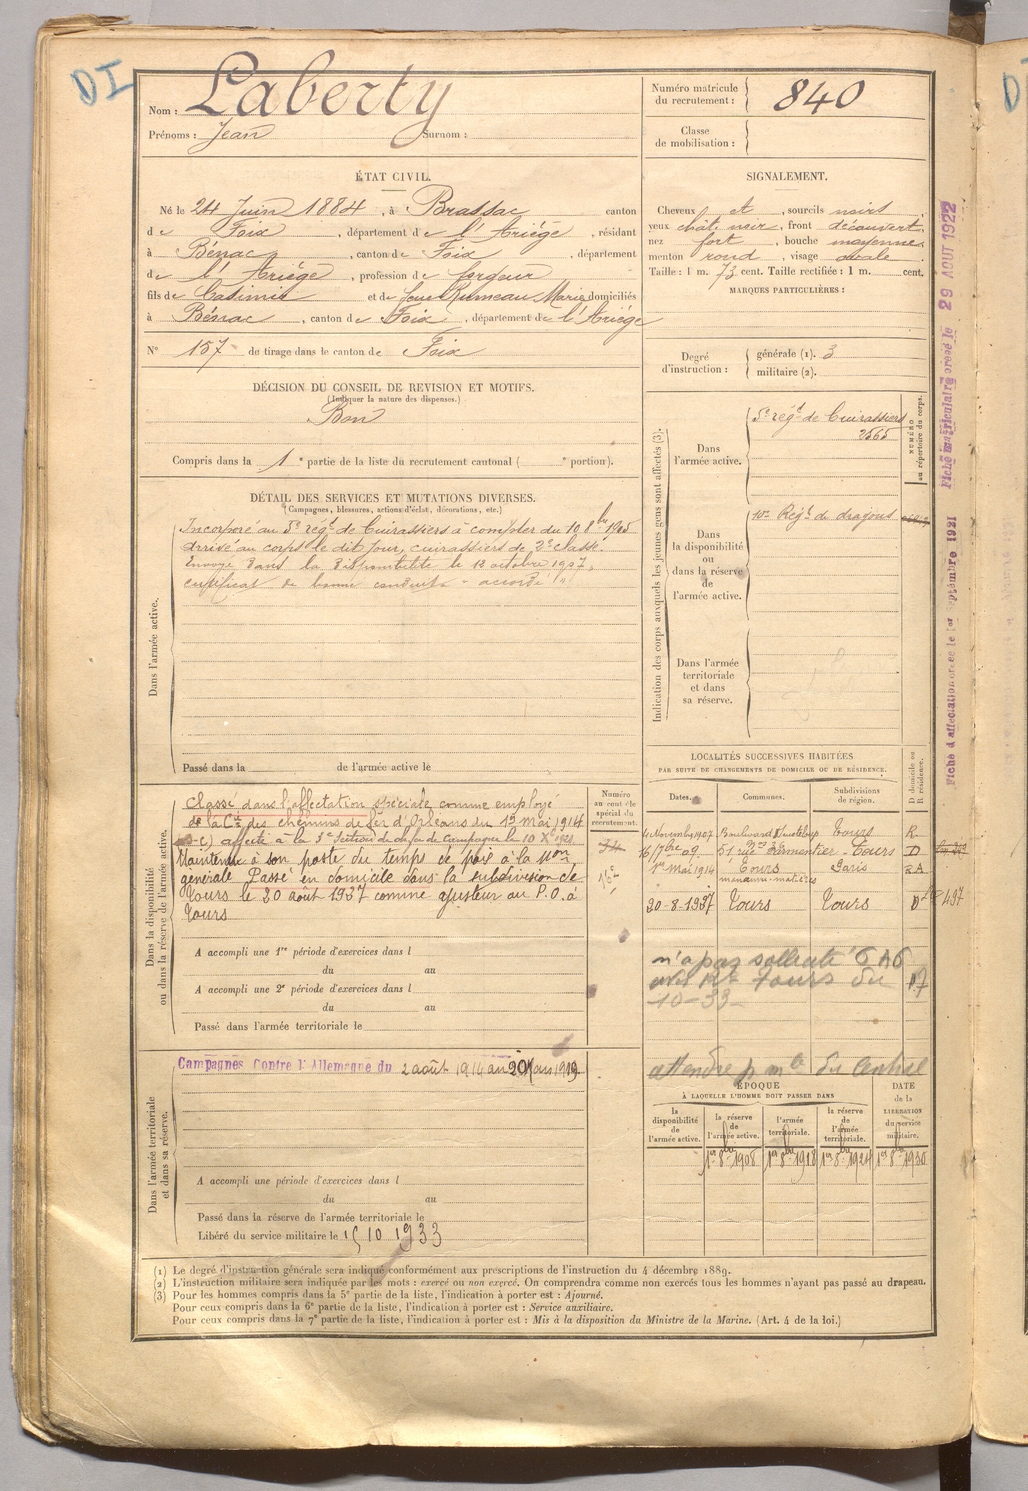 DI
Nom : Laberty
Prénoms : Jean Surnom :
Numéro matricule du recrutement : 840
Classe de mobilisation :
ÉTAT CIVIL.
Né le 24 Juin 1884, à Brassac canton
de Foix, département de l'Ariège, résidant
à Bénac, canton de Foix, département
de l'Ariège, profession de forgeur
fils de Casimir et de Rumeau Marie domiciliés
à Bénac, canton de Foix, département de l'Ariège
N° 157 de tirage dans le canton de Foix
SIGNALEMENT.
Cheveux et, sourcils noirs
yeux chât. noir, front découvert
nez fort, bouche moyenne
menton rond, visage ovale
Taille : 1 m. 73 cent. Taille rectifiée : 1 m. cent.
MARQUES PARTICULIÈRES :
Degré d'instruction : générale (1). 3
militaire (2).
DÉCISION DU CONSEIL DE REVISION ET MOTIFS.
(Indiquer la nature des dispenses.)
Bon
Compris dans la 1e partie de la liste du recrutement cantonal ( e portion).
DÉTAIL DES SERVICES ET MUTATIONS DIVERSES.
(Campagnes, blessures, actions d'éclat, décorations, etc.)
Dans l'armée active.
Incorporé au 5e régt de Cuirassiers à compter du 10 8bre 1905
arrivé au corps le dit jour, cuirassiers de 2e classe.
Envoyé dans la disponibilité le 13 octobre 1907,
certificat de bonne conduite "accordé"
Passé dans la de l'armée active le
Indication des corps auxquels les jeunes gens sont affectés (3).
NUMÉRO au répertoire du corps.
Dans l'armée active.
5e régt de Cuirassiers
2565
Dans la disponibilité ou dans la réserve de l'armée active.
10e Régt de dragons
Dans l'armée territoriale et dans sa réserve.
Fiche d'affectation créée le 1er Septembre 1921
Fiche matriculaire créée le 29 AOUT 1922
Dans la disponibilité ou dans la réserve de l'armée active.
Classé dans l'affectation spéciale comme employé
de la Cie des chemins de fer d'Orléans du 1er mai 1914
affecté à la 3e Section de ch. de fer de Campagne le 10 Xbre
Maintenu à son poste du temps de paix à la Mon
générale Passé en domicile dans la subdivision de
Tours le 20 août 1937 comme ajusteur au P.O. à
Tours
Numéro au contrôle spécial du recrutement.
A accompli une 1re période d'exercices dans l
du au
A accompli une 2e période d'exercices dans l
du au
Passé dans l'armée territoriale le
LOCALITÉS SUCCESSIVES HABITÉES
PAR SUITE DE CHANGEMENTS DE DOMICILE OU DE RÉSIDENCE.
Dates. Communes. Subdivisions de région. D domicile ou R résidence.
4 Novembre 1907 Boulevard Tours R
16 7bre 09 51 rue Parmentier Tours D
1er Mai 1914 Tours Paris RA
20-8-1937 Tours Tours D
n'a pas sollicité
Tours du
10-33
attendre du Central
Dans l'armée territoriale et dans sa réserve.
Campagnes Contre l'Allemagne du 2 août 1914 au 20 Mars 1919
A accompli une période d'exercices dans l
du au
Passé dans la réserve de l'armée territoriale le
Libéré du service militaire le 15 10 1933
ÉPOQUE
À LAQUELLE L'HOMME DOIT PASSER DANS
la disponibilité de l'armée active. la réserve de l'armée active. l'armée territoriale. la réserve de l'armée territoriale. DATE de la LIBÉRATION du service militaire.
1er 8bre 1908 1er 8bre 1918 1er 8bre 1924 1er 8bre 1930
(1) Le degré d'instruction générale sera indiqué conformément aux prescriptions de l'instruction du 4 décembre 1889.
(2) L'instruction militaire sera indiquée par les mots : exercé ou non exercé. On comprendra comme non exercés tous les hommes n'ayant pas passé au drapeau.
(3) Pour les hommes compris dans la 5e partie de la liste, l'indication à porter est : Ajourné.
Pour ceux compris dans la 6e partie de la liste, l'indication à porter est : Service auxiliaire.
Pour ceux compris dans la 7e partie de la liste, l'indication à porter est : Mis à la disposition du Ministre de la Marine. (Art. 4 de la loi.)